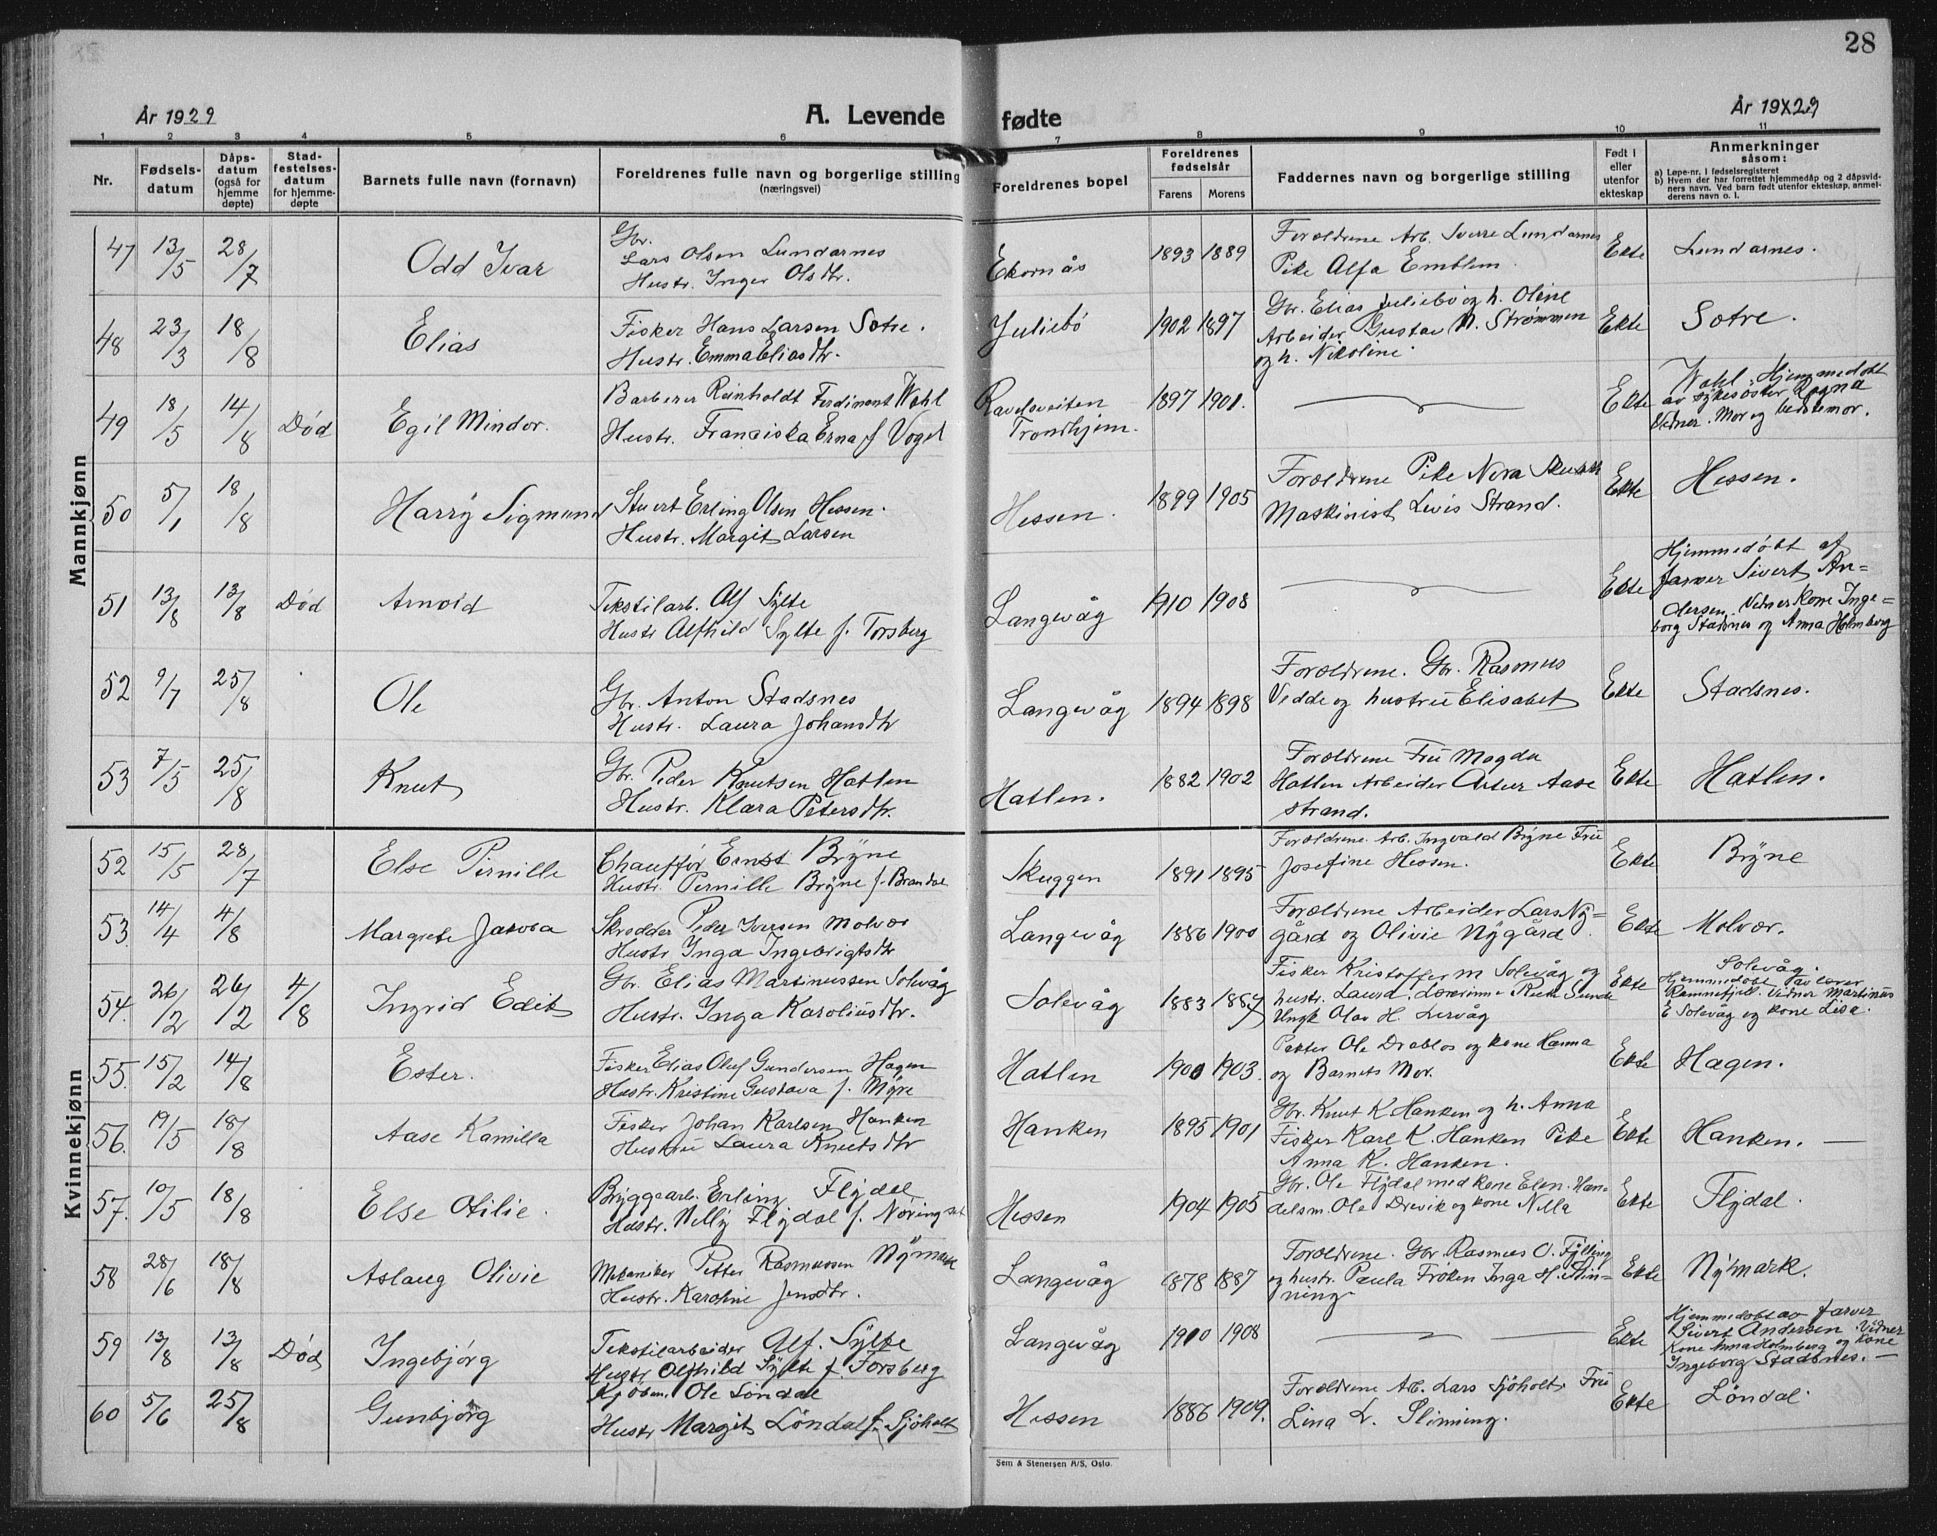 28
År 1929
A. Levende fødte
År 19X29
1 2 3 4 5 6 7 8 9 10 11
Nr.
Fødsels-
datum
Dåps-
datum
(også for
hjemme
døpte)
Stad-
festelses-
datum
for hjemme-
døpte
Barnets fulle navn (fornavn)
Foreldrenes fulle navn og borgerlige stilling
(næringsvei)
Foreldrenes bopel
Foreldrenes
fødselsår
Farens Morens
Faddernes navn og borgerlige stilling
Født i
eller
utenfor
ekteskap
Anmerkninger
såsom:
a) Løpe-nr. i fødselsregisteret
b) Hvem der har forrettet hjemmedåp og 2 dåpsvid-
ners navn. Ved barn født utenfor ekteskap, anmel-
derens navn o. l.
Mannkjønn
47 13/5 28/7 Odd Ivar
Gbr.
Lars Olsen Lundarnes
Hustr. Inger Olsdtr.
Ekornås 1893 1889
Foreldrene Arb. Sverre Lundarnes
Pike Alfa Emblem
Ekte Lundarnes.
48 23/3 18/8 Elias
Fisker Hans Larsen Sotre.
Hustr. Emma Eliasdtr.
Juliebö 1902 1897
Gbr. Elias Juliebö og h. Oline
Arbeider Gustav N. Strømmen
og h. Nikoline.
Ekte Sotre.
49 18/5 14/8 Död Egil Mindor.
Barberer Reinholdt Ferdinant Wahl
Hustr. Franciska Erna f Vogel
Trondhjem. 1897 1901.
Ekte
Wahl. Hjemmedöbt
av sykesöster Ragna
Vidner. Mor og bedstemor.
50 5/1 18/8 Harry Sigmund
Stuert Erling Olsen Hessen.
Hustr. Margit Larsen
Hessen. 1899 1905
Foreldrene Pike Nora
Maskinist Levis Strand.
Ekte Hessen.
51 13/8 13/8 Död Arnold
Tekstilarb. Alf Sylte
Hustr Alfhild Sylte f. Torsberg
Langevåg 1910 1908
Ekte
Hjemmedöbt af
farver Sivert An=
dersen. Vidner Kone Inge=
borg Stadsnes og Anna Holmberg
52 9/7 25/8 Ole
Gbr. Anton Stadsnes
Hustr. Laura Johansdtr
Langevåg 1894 1898
Foreldrene. Gbr. Rasmus
Vedde og hustru Elisabet
Ekte Stadsnes.
53 7/5 25/8 Knut
Gbr. Peder Knutsen Hatlen
Hustr. Klara Petersdtr.
Hatlen. 1882 1902
Foreldrene Fru Magda
Hatlen Arbeider Artur Aase
strand.
Ekte Hatlen.
Kvinnekjønn
52 15/5 28/7 Else Pernille
Chaufför Ernst Bryne
Hustr. Pernille Bryne f. Brandal
Skuggen 1891 1895
Foreldrene. Arb. Ingvald Bryne Fru
Josefine Hessen.
Ekte Bryne
53. 14/4 4/8 Margrete Jakoba
Skredder Peder Iversen Molvær
Hustr. Inga Ingebrigtsdtr
Langevåg 1886 1900
Foreldrene Arbeider Lars Ny=
gård og Olivie Nygård
Ekte Molvær.
54. 26/2 26/2 4/8 Ingrid Edit
Gbr. Elias Martinussen Solevåg
Hustr. Inga Karoliusdtr.
Solevåg 1883 1887
Fisker Kristoffer M Solevåg og
hustr. Laura. Lærerinne Ruth Sunde
Ungk Olav H. Lervåg
Ekte
Solevåg.
Hjemmedöbt av lærer
Ramnefjell. Vidner Martinus
E Solevåg og kone Lisa.
55. 15/2 14/8 Ester.
Fisker Elias Oluf Gundersen Hagen
Hustr. Kristine Gustava f. Myre
Hatlen 1900 1903.
Petter Ole Drabløs og kone Hanna
og Barnets Mor.
Ekte Hagen.
56. 19/5 18/8 Aase Kamilla
Fisker Johan Karlsen Hanken
Hustru Laura Knutsdtr
Hanken 1895 1901
Gbr. Knut K Hanken og h. Anna
Fisker Karl K. Hanken Pike
Anna K. Hanken.
Ekte Hanken. —
57. 10/5 18/8 Else Otilie.
Bryggearb. Erling Flydal
Hustr. Nelly Flydal f. Nöringset
Hessen 1904 1905
Gbr. Ole Flydal med kone Elen. Han-
delsm. Ole Drevik og kone Nilla
Ekte Flydal.
58 28/6 18/8 Aslaug Olivie
Mekaniker Petter Rasmussen Nymark
Hustr. Karoline Jensdtr.
Langevåg 1878 1887
Foreldrene. Gbr. Rasmus O. Fylling
og hustr. Paula Frøken Inga H. Slin-
ning
Ekte Nymark.
59 13/8 13/8 Död Ingebjörg
Tekstilarbeider Alf. Sylte
Hustr Alfhild Sylte f Forsberg
Langevåg 1910 1908
Ekte
Hjemmedöbt av farver
Sivert Andersen. Vidner
Kone Anna Holmberg og Kone
Ingeborg Stadsnes. —
60 5/6 25/8 Gunbjörg
Kjöbm. Ole Löndal
Hustr Margit Löndal f. Sjöholt
Hessen 1886 1909.
Foreldrene Arb. Lars Sjöholt Fru
Lina L. Slinning.
Ekte Löndal
Sem & Stenersen A/S, Oslo.